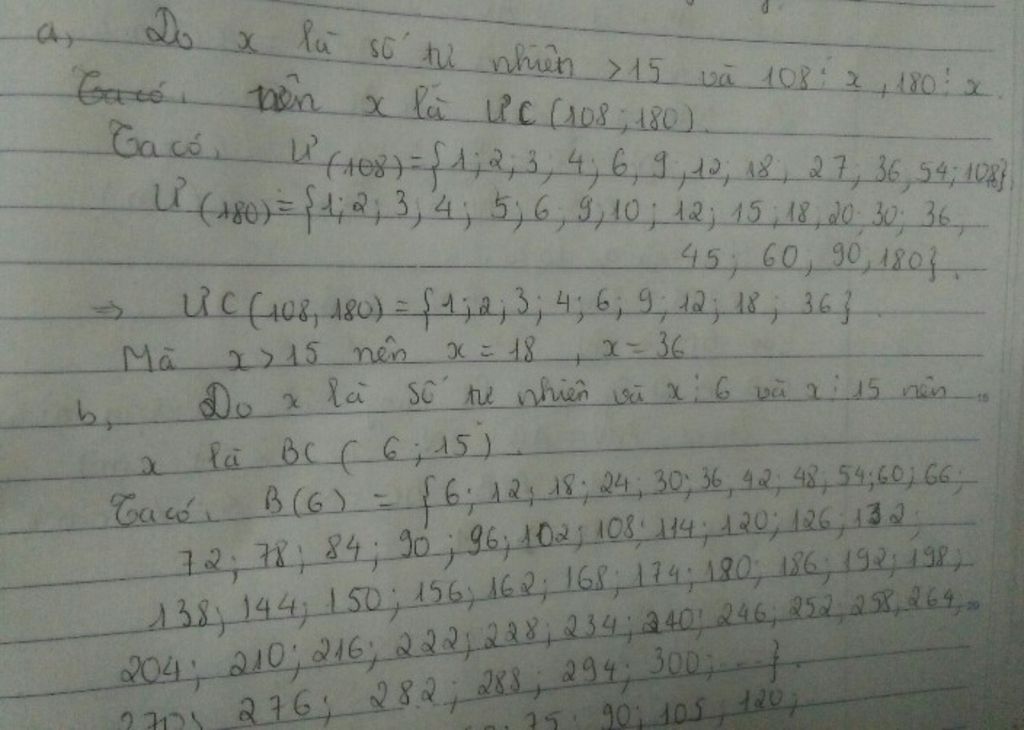 a, Do x là số tự nhiên >15 và 108⋮x, 180⋮x.
nên x là ƯC(108;180).
Ta có, Ư(108)={1;2;3;4;6;9;12,18, 27,36,54;108}
Ư(180)={1;2;3;4; 5;6,9,10; 12; 15;18,20,30; 36,
45; 60, 90,180}.
⇒ ƯC(108,180)={1;2;3;4;6;9;12;18; 36}.
Mà x>15 nên x=18, x=36
b, Do x là số tự nhiên và x⋮6 và x⋮15 nên
x là BC(6;15).
Ta có, B(6) = {6;12;18;24;30;36,42;48;54;60;66;
72;78;84;90;96;102;108;114;120;126;132;
138;144;150;156;162;168;174;180;186;192;198;
204;210;216;222;228;234;240;246;252,258,264,
270; 276; 282; 288; 294; 300; ...}.
75; 90; 105; 120;